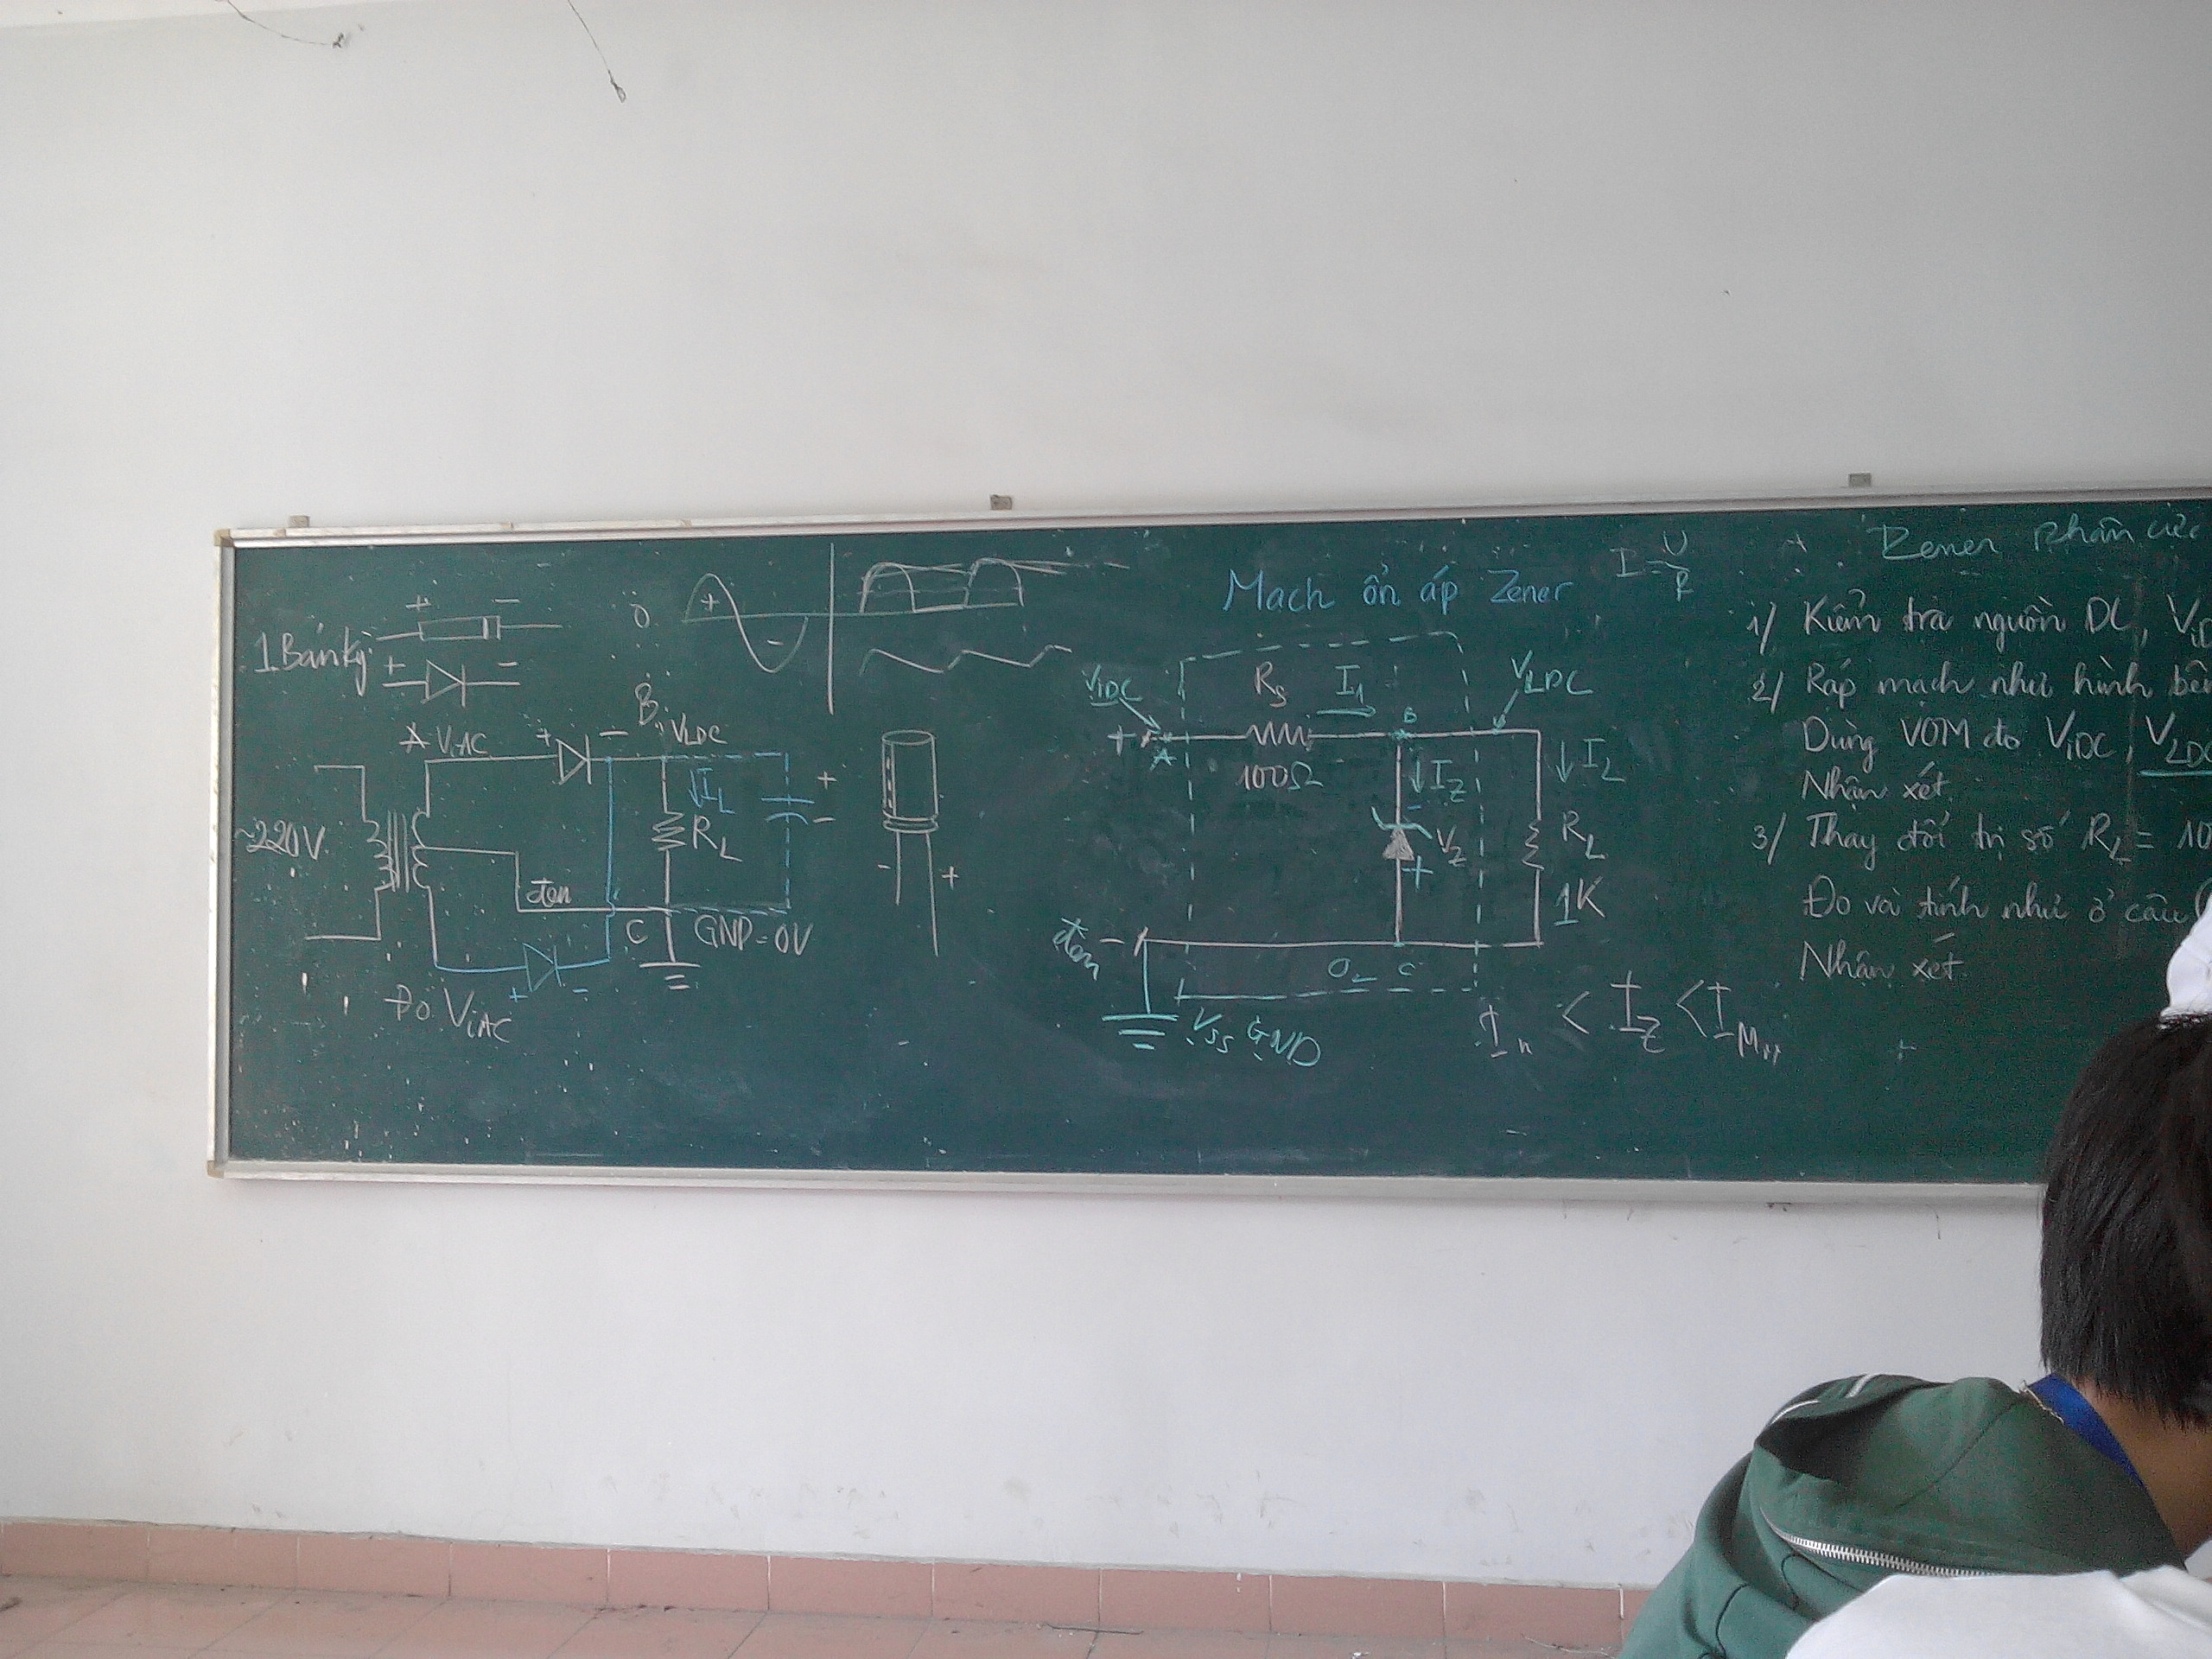 1. Bán kỳ:
+ -
+ -
0
+ -
A ViAC
+ -
B VLDC
IL
RL
+
-
~220V
đen
C GND = 0V
+ -
Đo ViAC
- +
Mạch ổn áp Zener
I = U/R
ViDC
RS
I1
VLDC
+
A
B
100Ω
IZ
IL
-
VZ
+
RL
1K
đen -
C
VSS GND
< IZ <
Zener phân cực
1/ Kiểm tra nguồn DC, ViD
2/ Ráp mạch như hình bên
Dùng VOM đo ViDC, VLDC
Nhận xét
3/ Thay đổi trị số RL = 10
Đo và tính như ở câu
Nhận xét